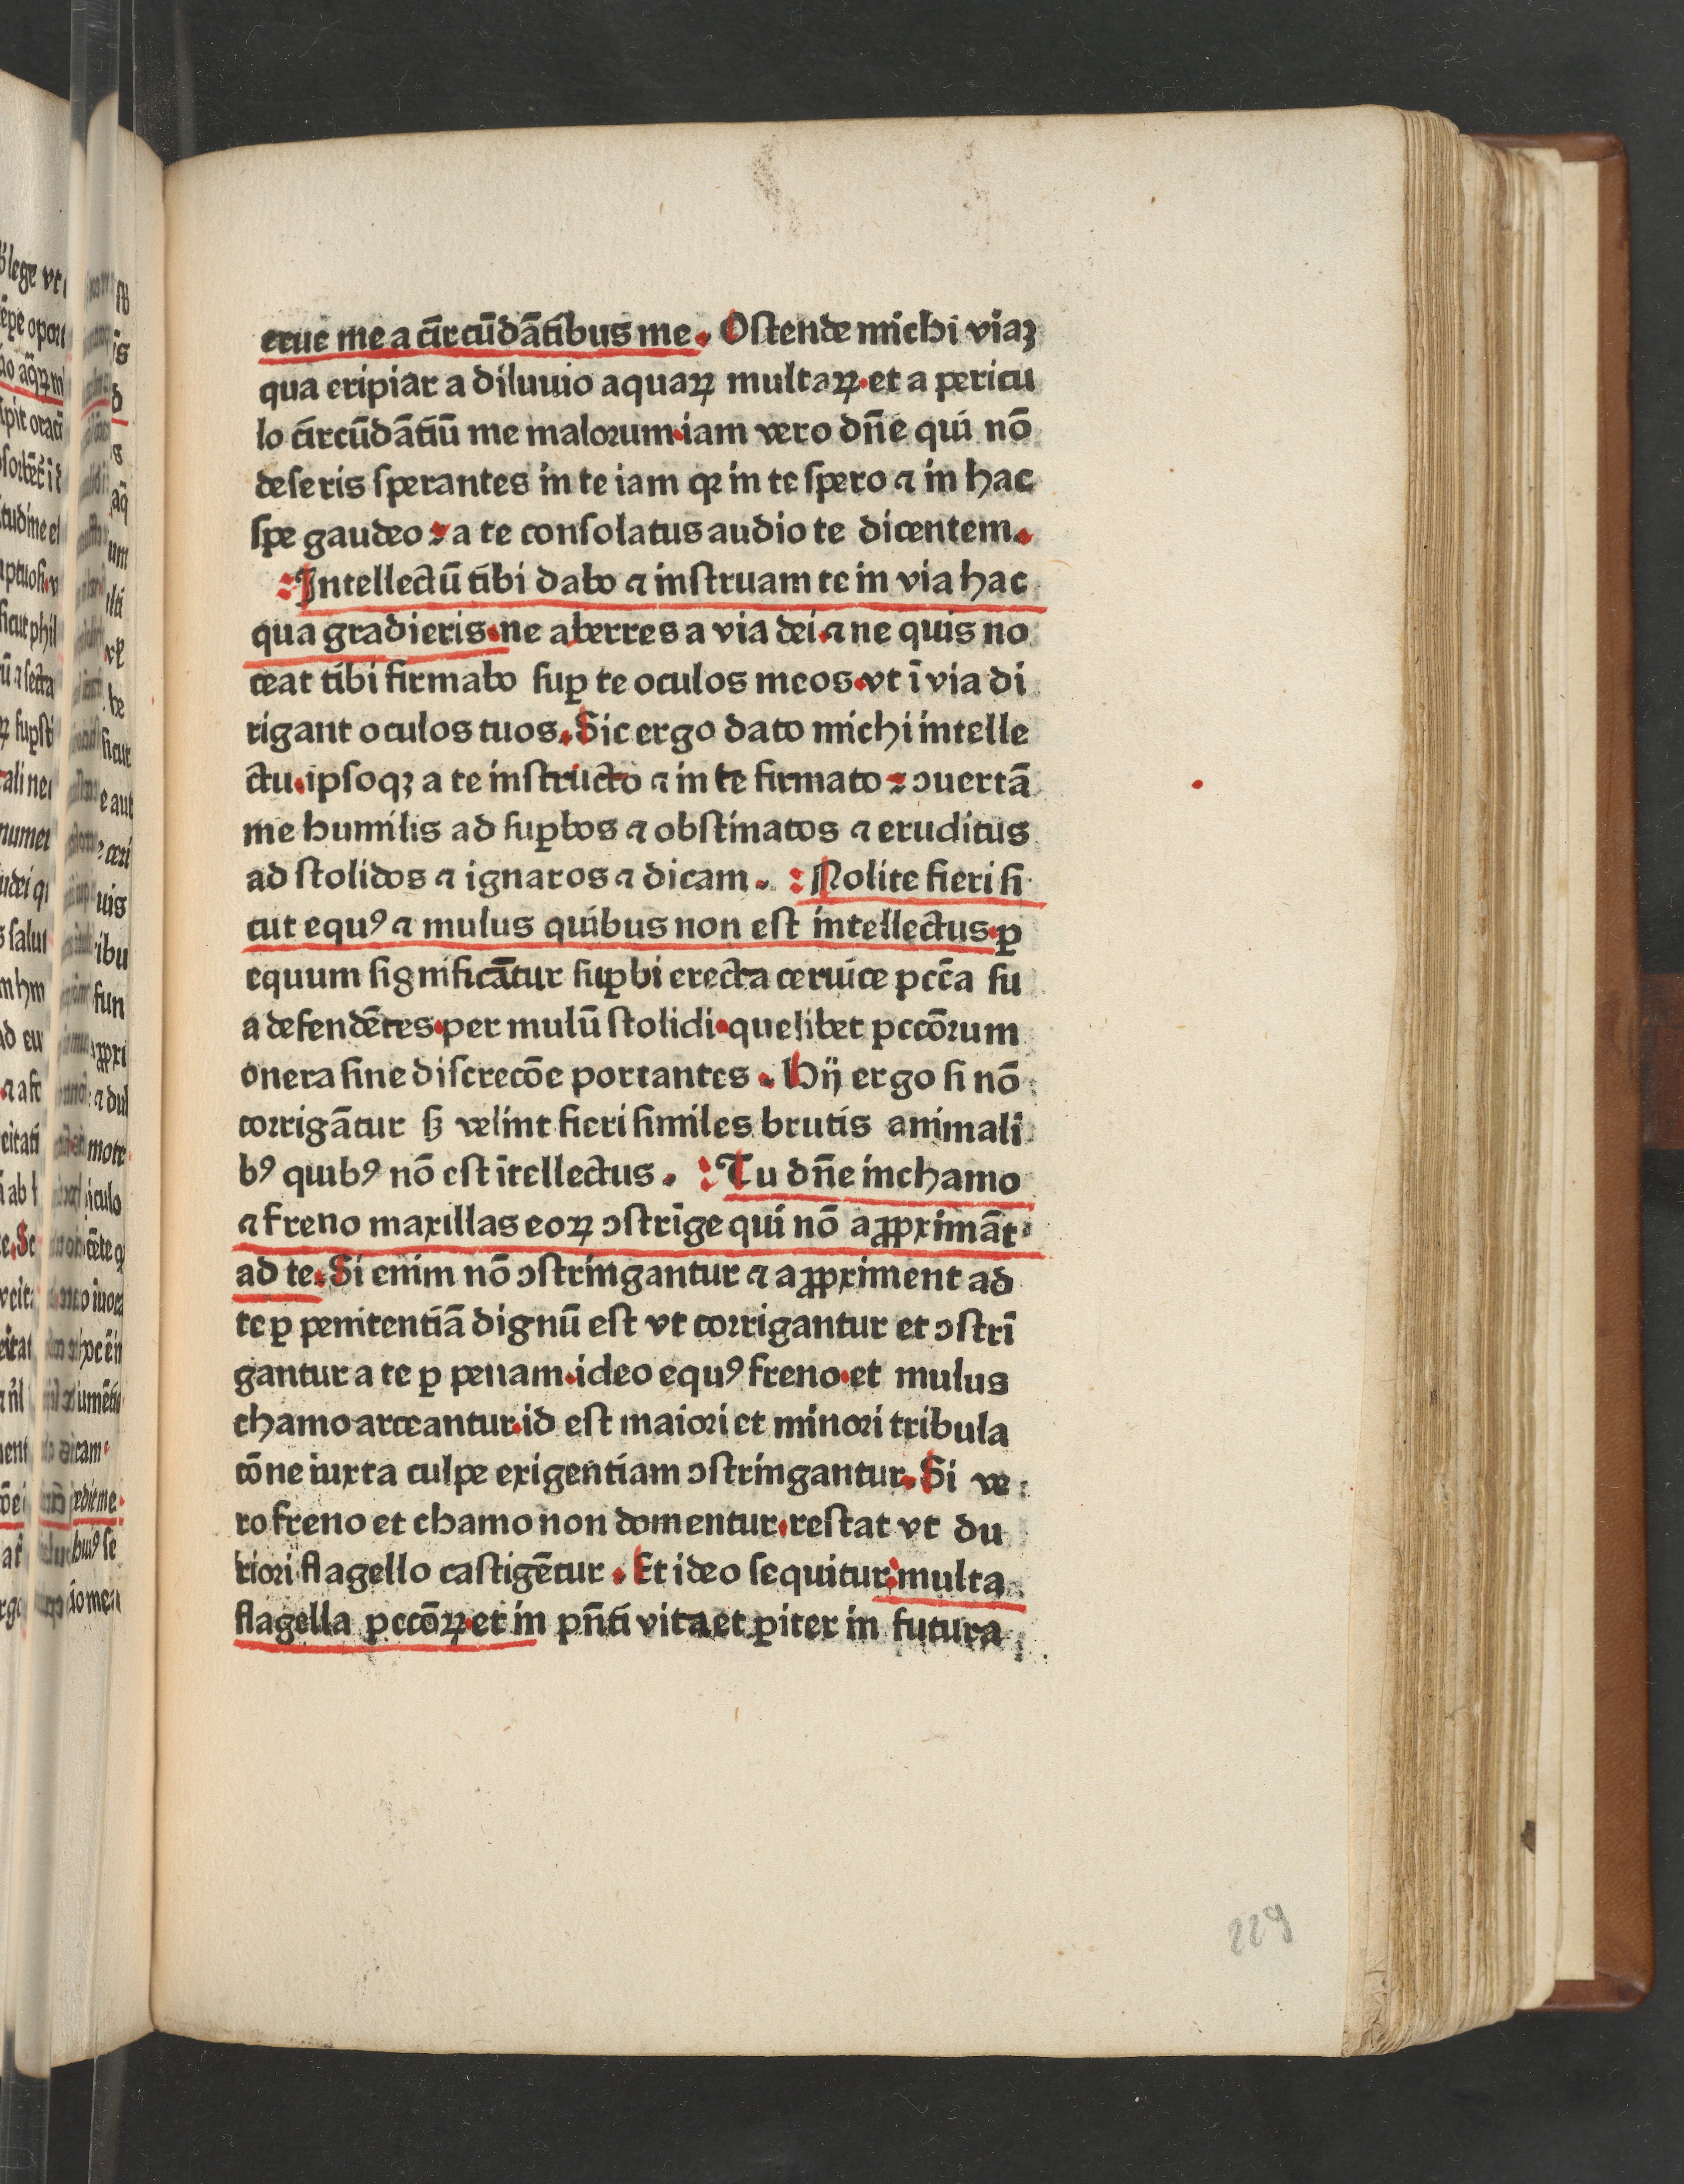 erue me a circūdātibus me. Ostende michi viaꝫ
qua eripiar a diluuio aquaꝝ multaꝝ. et a pericu
lo circūdātiū me malorum. iam vero dn̄e qui nō
deseris sperantes in te iam qꝛ in te spero ⁊ in hac
spe gaudeo: a te consolatus audio te dicentem.
: Intellectū tibi dabo ⁊ instruam te in via hac
qua gradieris. ne aberres a via dei. ⁊ ne quis no
ceat tibi firmabo suꝑ te oculos meos. vt ī via di
rigant oculos tuos. Sic ergo dato michi intelle
ctu. ipsoqꝫ a te instructo ⁊ in te firmato: ↄuertā
me humilis ad suꝑbos ⁊ obstinatos ⁊ eruditus
ad stolidos ⁊ ignaros ⁊ dicam. : Nolite fieri si
cut equꝰ ⁊ mulus quibus non est intellectus. ꝑ
equum significātur suꝑbi erecta ceruice pcc̄a su
a defendētes. per mulū stolidi. quelibet pccōrum
onera sine discrecōe portantes. Hij ergo si nō
corrigātur sꝫ velint fieri similes brutis animali
bꝰ quibꝰ nō est ītellectus. : Tu dn̄e in chamo
⁊ freno maxillas eoꝝ ↄstrīge qui nō aꝓximāt
ad te. Si enim nō ↄstringantur ⁊ aꝓximent ad
te ꝑ penitentiā dignū est vt corrigantur et ↄstrī
gantur a te ꝑ penam. ideo equꝰ freno. et mulus
chamo arceantur. id est maiori et minori tribula
cōne iuxta culpe exigentiam ↄstringantur. Si ve
ro freno et chamo non domentur. restat vt du
riori flagello castigētur. Et ideo sequitur: multa
flagella pccōꝝ. et in pn̄ti vita et ꝑiter in futura
229